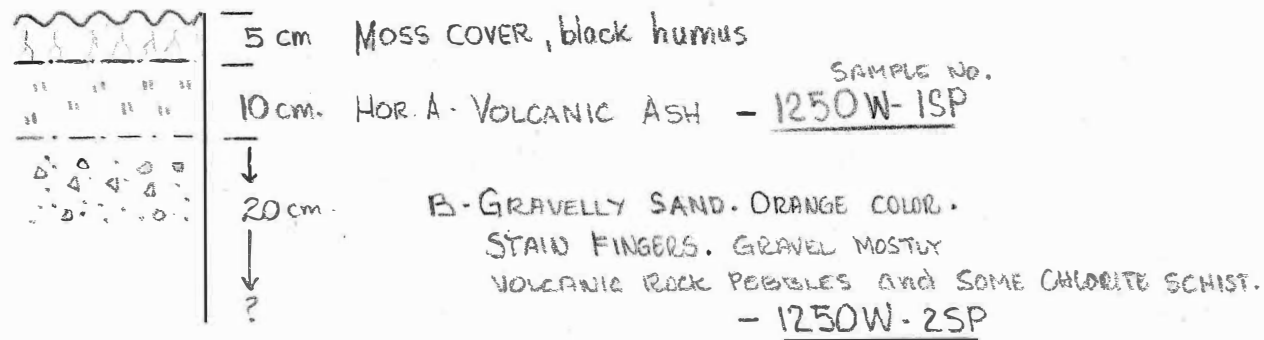 5 cm Moss COVER, black humus
SAMPLE No.
10 cm. HOR. A - VOLCANIC ASH - 1250W-1SP
20 cm. B - GRAVELLY SAND. ORANGE COLOR.
STAIN FINGERS. GRAVEL MOSTLY
VOLCANIC ROCK PEBBLES and SOME CHLORITE SCHIST.
?
- 1250W-2SP